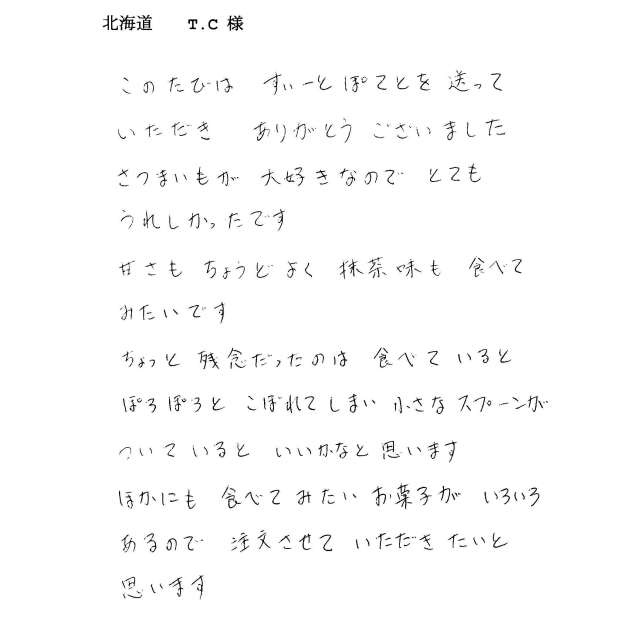 北海道　　T.C 様
このたびは　すぃーとぽてとを 送って
いただき　ありがとう ございました
さつまいもが 大好きなので とても
うれしかったです
甘さも ちょうどよく 抹茶味も 食べて
みたいです
ちょっと 残念だったのは 食べて いると
ぽろぽろと こぼれてしまい 小さな スプーンが
ついて いると いいかなと 思います
ほかにも 食べて みたい お菓子が いろいろ
あるので 注文させて いただき たいと
思います